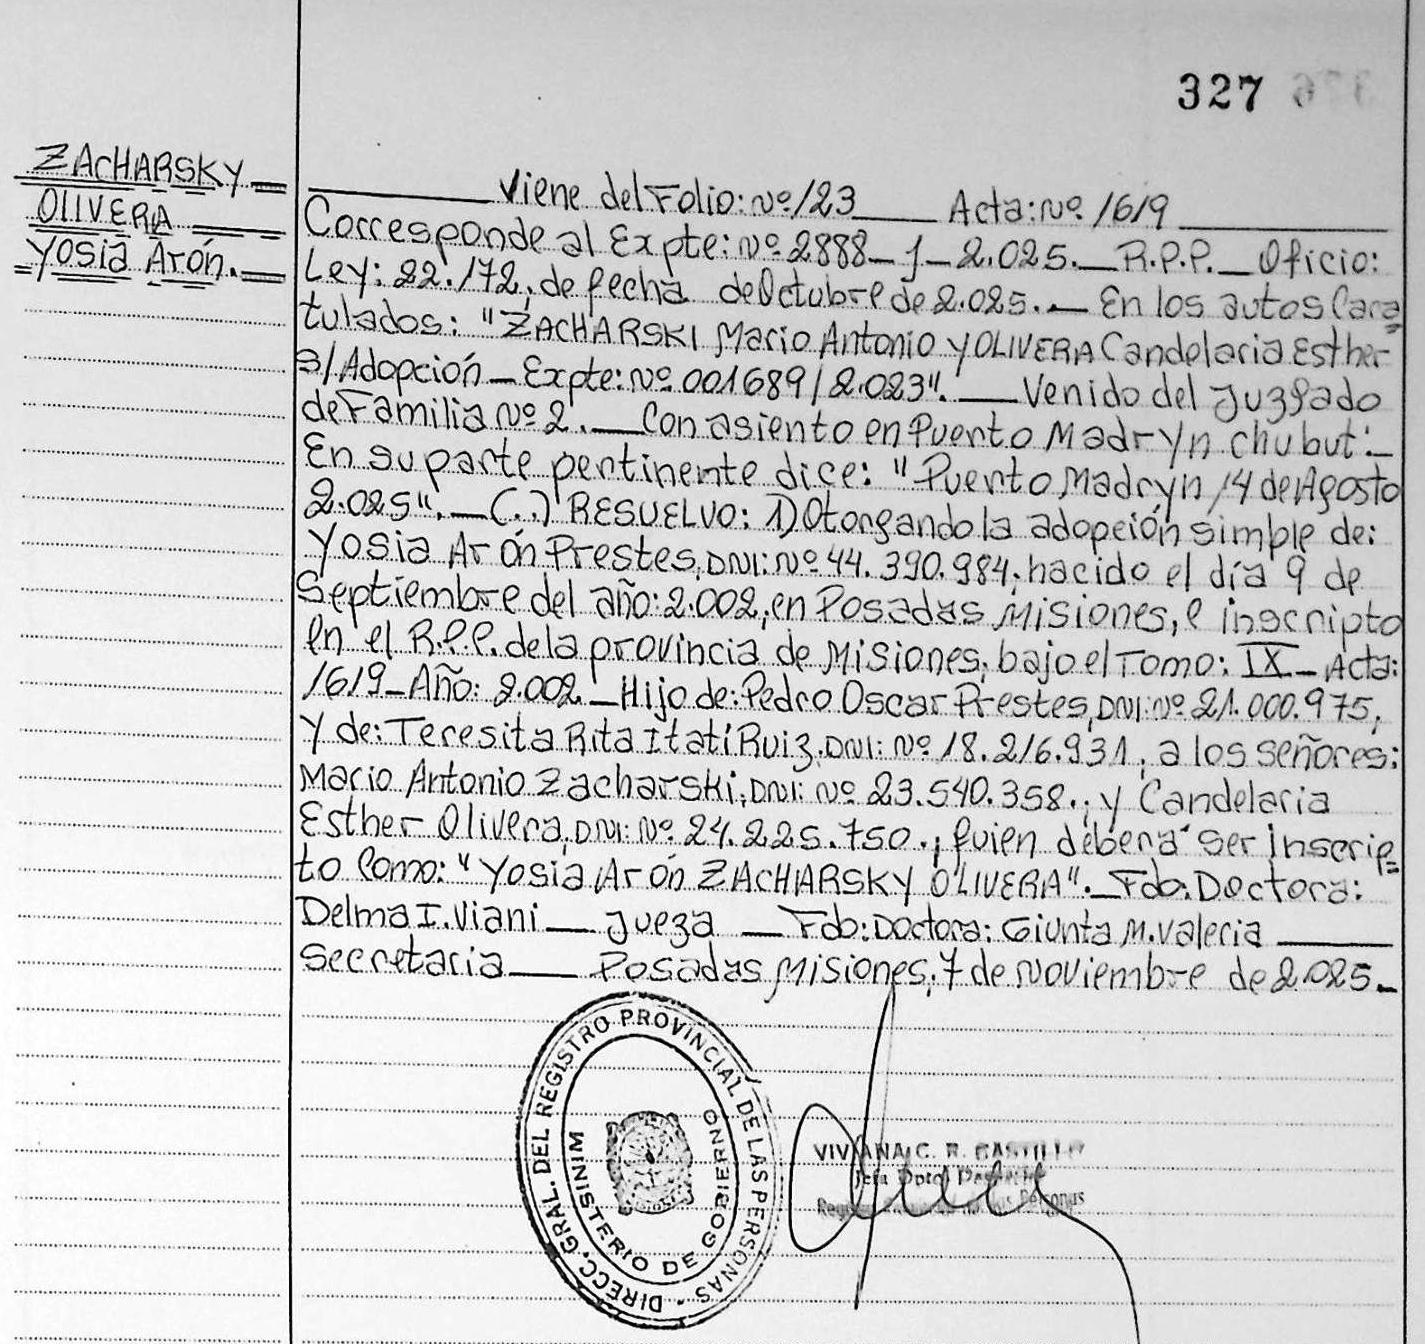 327
ZACHARSKY
OLIVERA
Yosia Arón.
Viene del Folio: Nº 123 Acta: Nº 1619
Corresponde al Expte: Nº 2888_J_2.025._ R.P.P._ Oficio:
Ley: 22.172, de fecha de Octubre de 2.025._ En los autos Cara=
tulados: "ZACHARSKI Mario Antonio Y OLIVERA Candelaria Esther
S/Adopción _ Expte: Nº 001689/2.023"._ Venido del Juzgado
de Familia Nº 2._ Con asiento en Puerto Madryn Chubut:_
En su parte pertinente dice: "Puerto Madryn 14 de Agosto
2.025"._ (..) RESUELVO: 1) Otorgando la adopción simple de:
Yosia Arón Prestes, DNI: Nº 44.390.984, nacido el día 9 de
Septiembre del año: 2.002, en Posadas Misiones, e inscripto
en el R.P.P. de la provincia de Misiones, bajo el Tomo: IX _ Acta:
1619 _ Año: 2.002 _ Hijo de: Pedro Oscar Prestes, DNI: Nº 21.000.975,
Y de: Teresita Rita Itatí Ruiz, DNI: Nº 18.216.931, a los señores:
Mario Antonio Zacharski, DNI: Nº 23.540.358., y Candelaria
Esther Olivera, DNI: Nº 24.225.750., quien deberá ser inscrip=
to como: "Yosia Arón ZACHARSKY OLIVERA"._ Fdo: Doctora:
Delma I. Viani ___ Jueza _ Fdo: Doctora: Giunta M. Valeria ___
Secretaria ___ Posadas Misiones, 7 de Noviembre de 2.025._
DIRECC. GRAL. DEL REGISTRO PROVINCIAL DE LAS PERSONAS
MINISTERIO DE GOBIERNO
VIVIANA C. R. CASTILLO
Personas